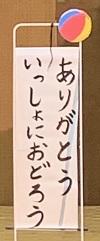 ありがとう
いっしょにおどろう